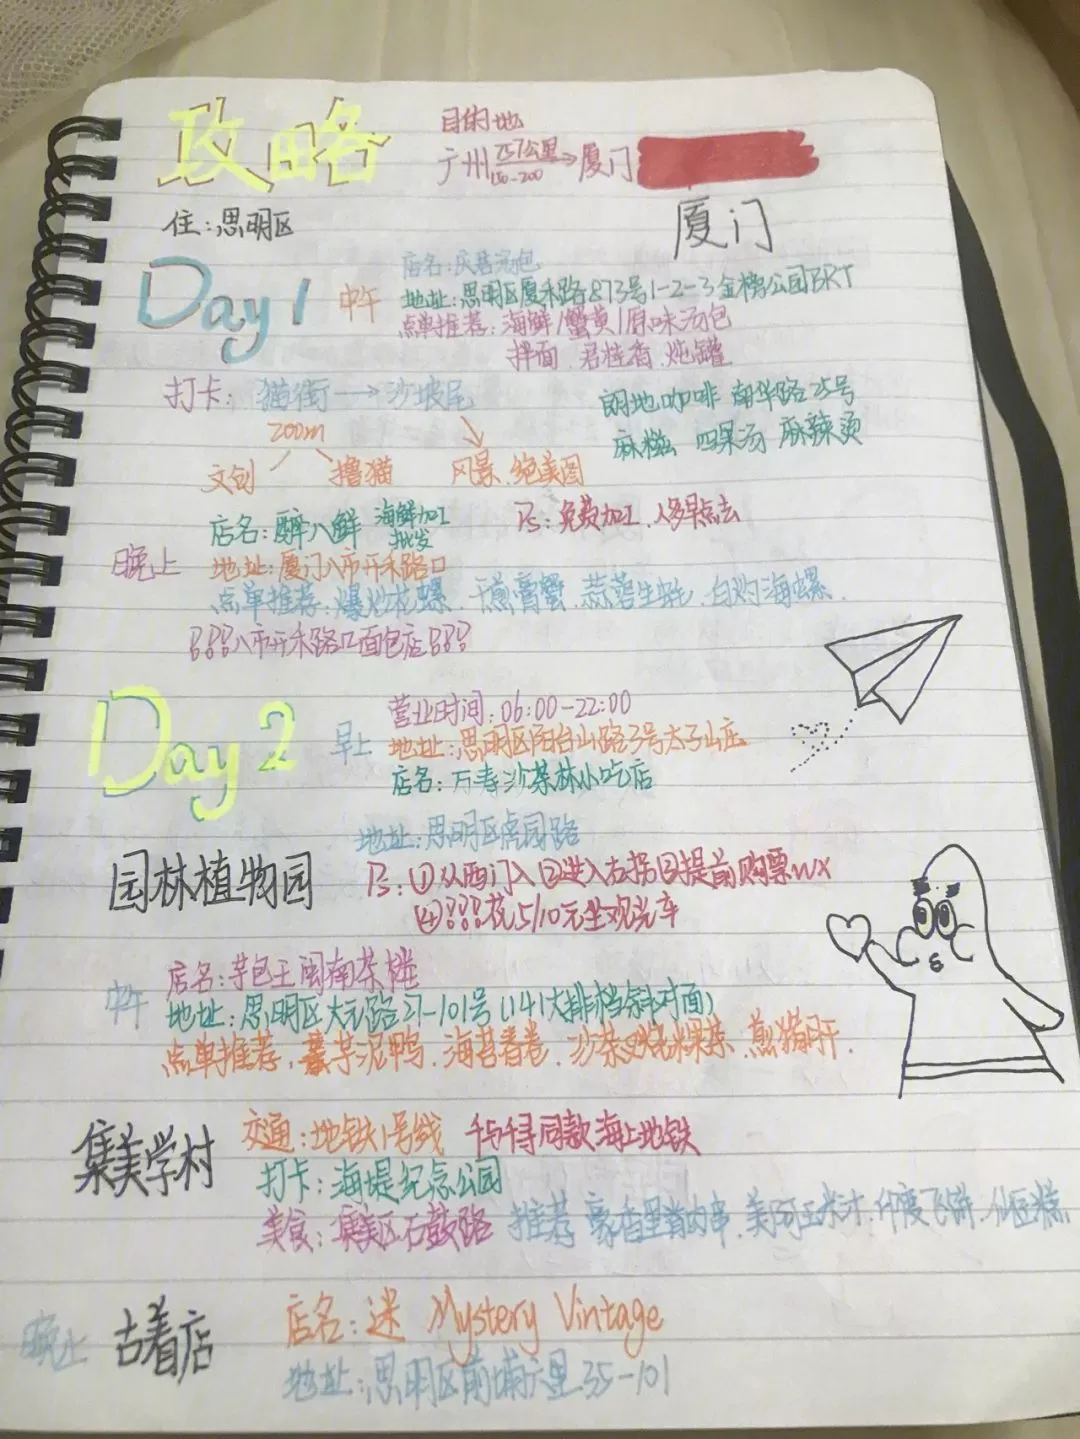 攻略
目的地
广州 757公里 150-200 厦门
住:思明区
厦门
Day 1 中午
店名:庆 汤包
地址:思明区厦禾路873号1-2-3金榜公园BRT
点单推荐:海鲜/蟹黄/原味汤包
拌面 君桂香 炖罐
打卡:猫街→沙坡尾
朗地咖啡 南华路25号
200m
麻糍 四果汤 麻辣烫
文创 撸猫 风景、绝美图
店名:醉八鲜 海鲜加工批发
Ps:免费加工、人多早点去
晚上 地址:厦门八市开禾路口
点单推荐:爆炒花螺、干煎膏蟹、蒜蓉生蚝、白灼海螺、
八市开禾路口面包店
Day 2 早上
营业时间:06:00-22:00
地址:思明区阳台山路3号太子山庄
店名:万寿沙茶林小吃店
地址:思明区虎园路
园林植物园
Ps:①从西门入②进入右拐③提前购票wx
④花5/10元坐观光车
中午
店名:芋包王闽南茶楼
地址:思明区大元路27-101号(141大排档斜对面)
点单推荐、芋泥鸭、海苔春卷、沙茶 粿条、煎猪肝、
集美学村
交通:地铁1号线 千与千寻同款海上地铁
打卡:海堤纪念公园
美食:集美区石鼓路 推荐 豪香里脊肉串、美阿玉米汁、印度飞饼、仙豆糕
晚上 古着店
店名:迷 Mystery Vintage
地址:思明区前埔六里35-101